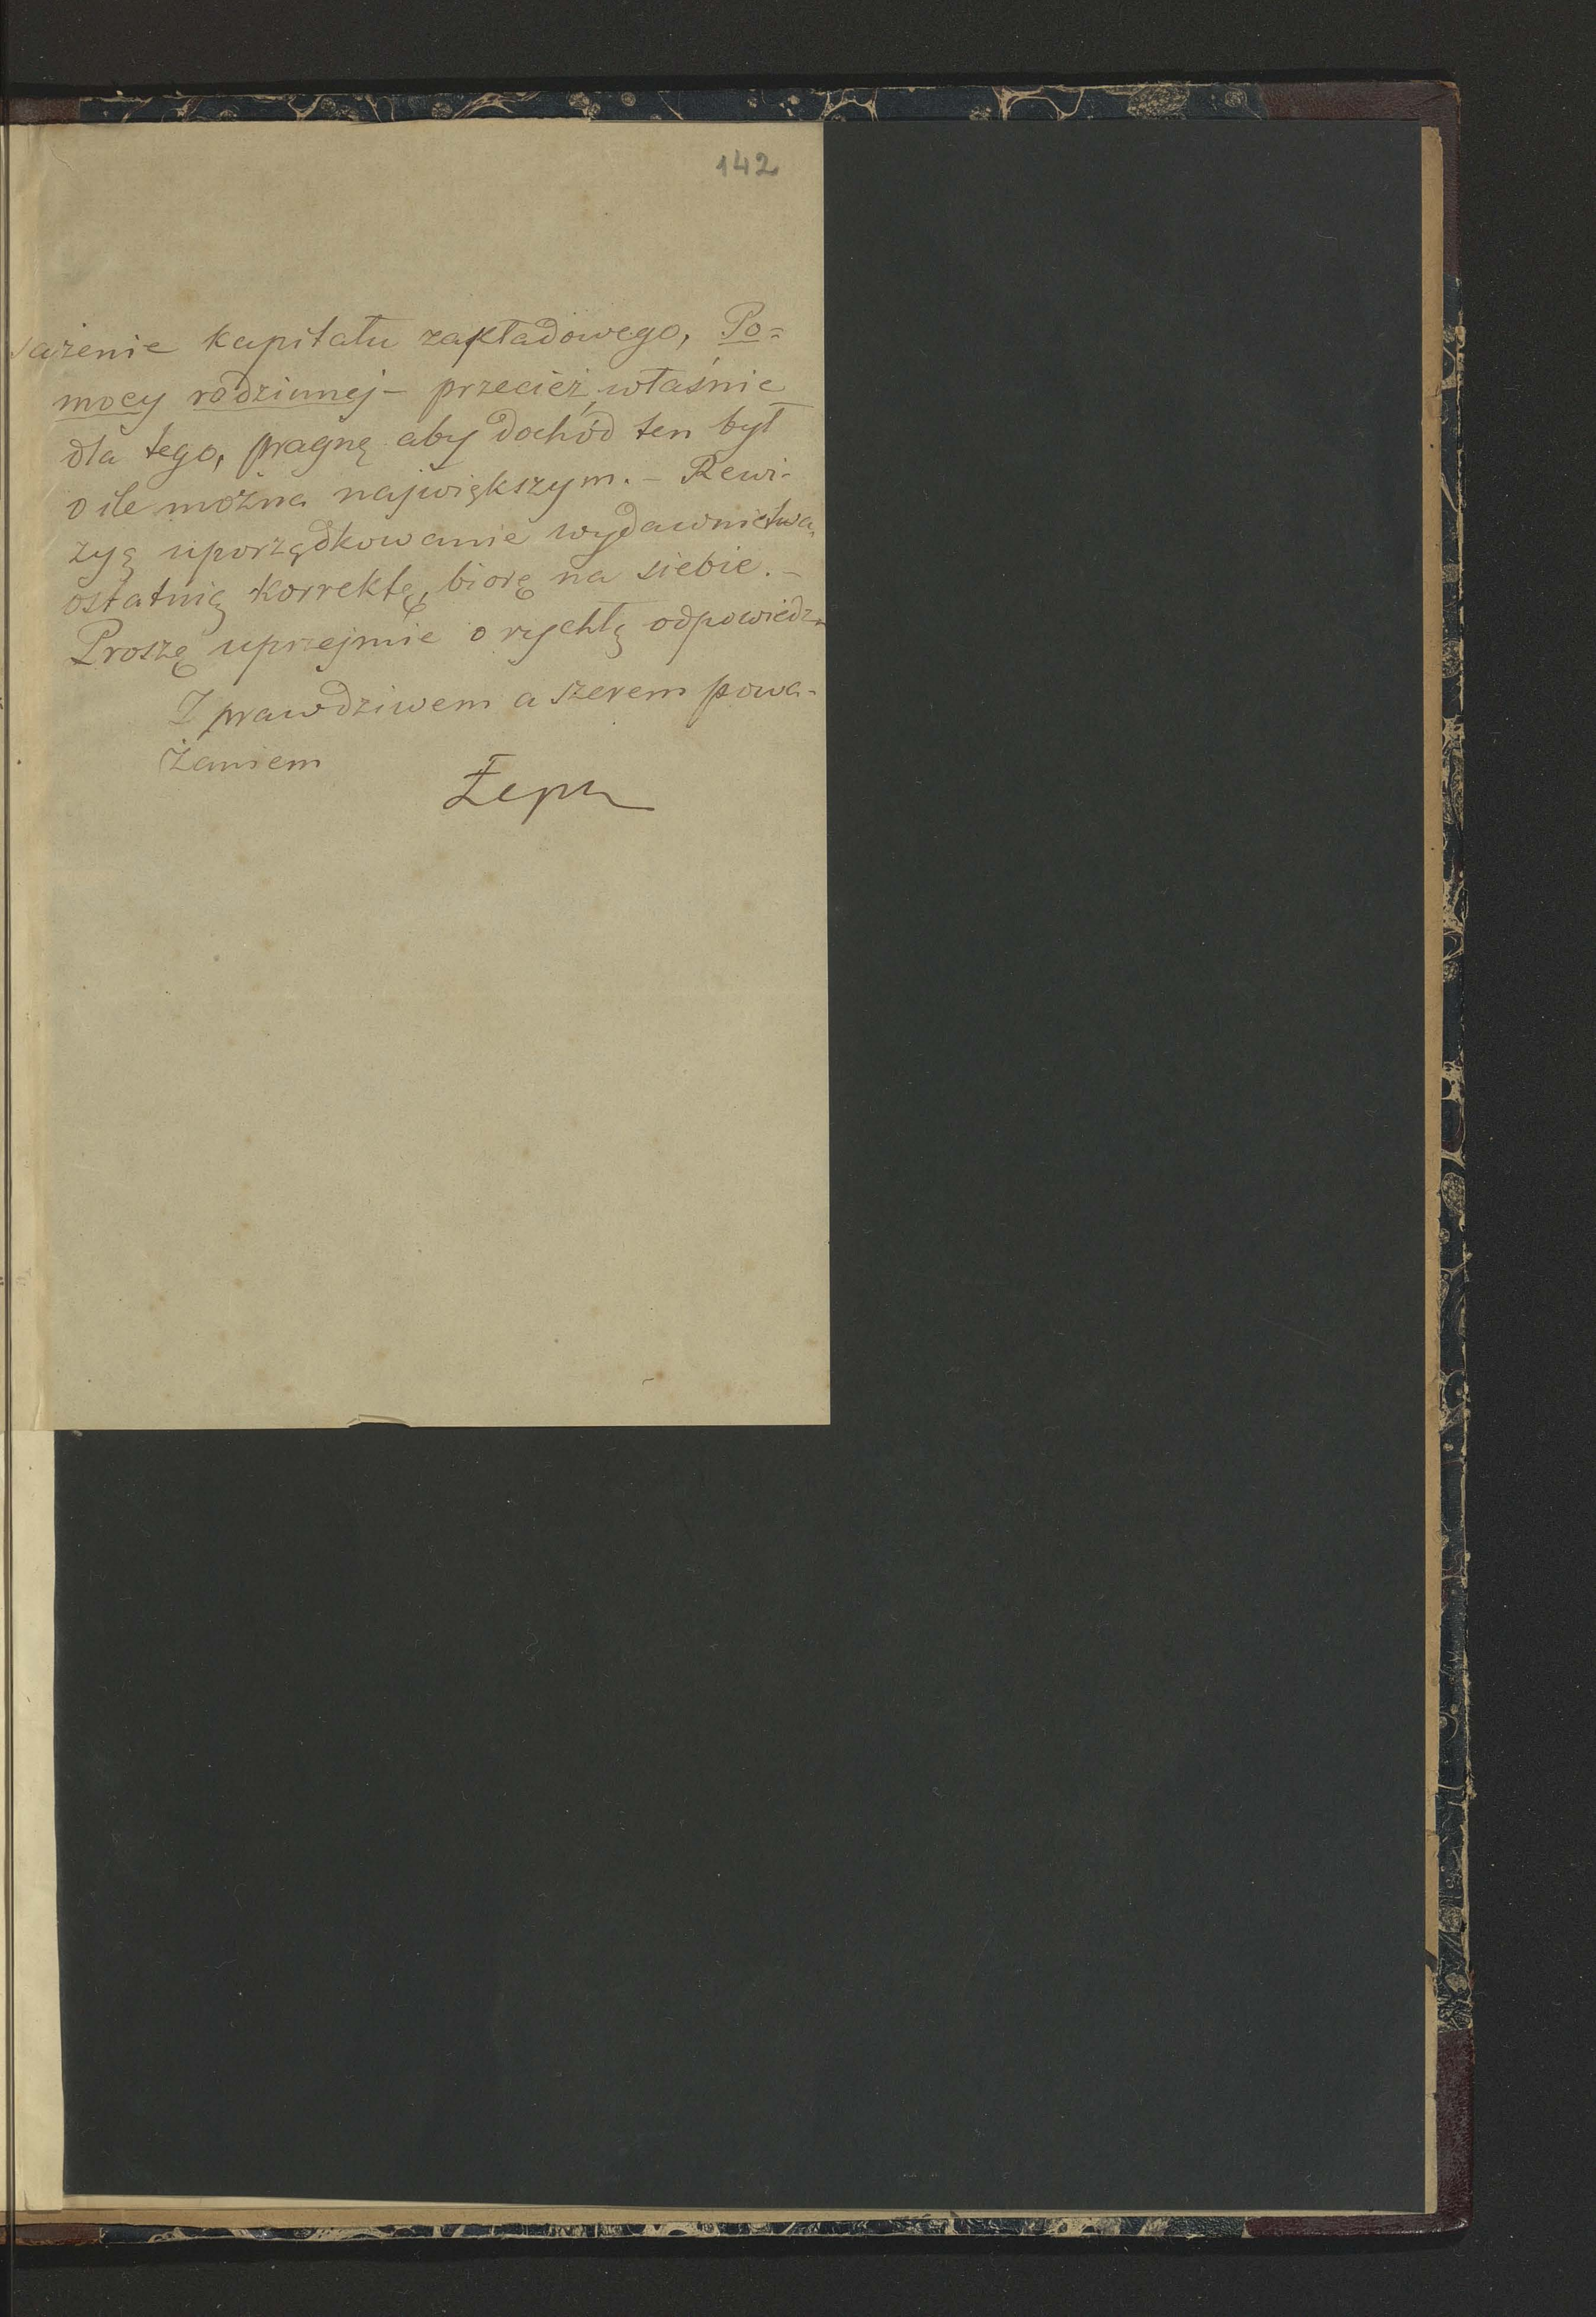 142
sażenie kapitału zakładowego, Po=
mocy rodzinnej – przecież właśnie
dla tego, pragnę aby dochód ten był
o ile można największym. – Rewi-
zyą uporządkowanie wydawnictwa,
ostatnią korrektę, biorę na siebie. –
Proszę uprzejmie o rychłą odpowiedz
Z prawdziwem a szerem powa-
żaniem